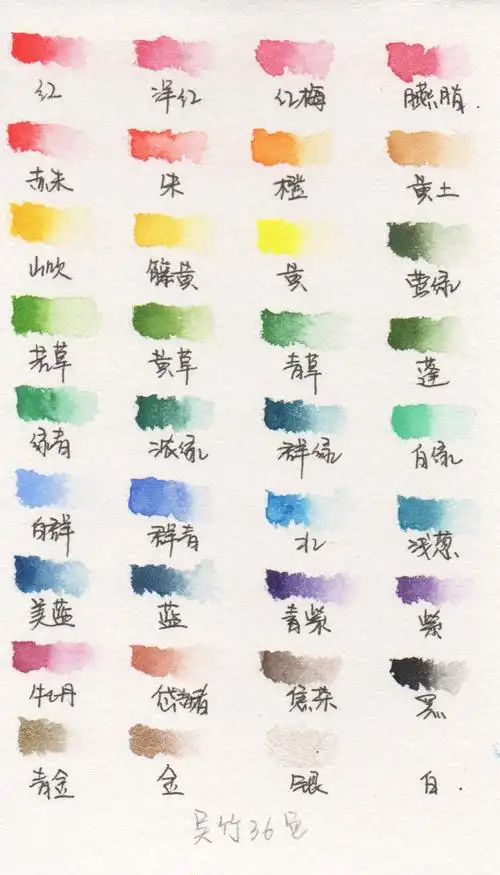 红 洋红 红梅 臙脂.
赤朱 朱 橙 黄土
山吹 籐黄 黄 莺绿
若草 黄草 青草 蓬
绿青 浓绿 群绿 白绿
白群 群青 水 浅葱
美蓝 蓝 青紫 紫
牡丹 岱赭 焦茶 黑
青金 金 银 白.
吴竹36色